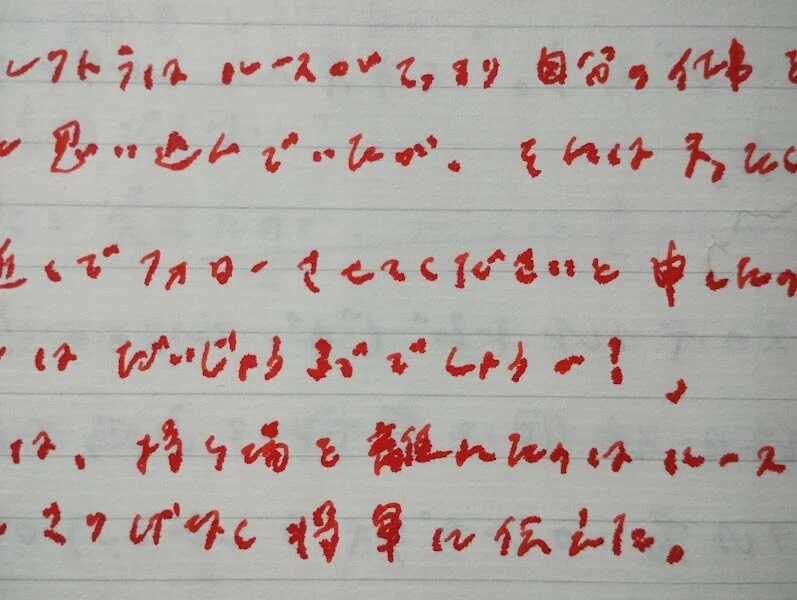 レクトラは ルースがてっきり 自分の仕事を
思い込んでいたが、それは
近くでフォローさせてくださいと申したの
は だいじょうぶでしょうー!」
は、持ち場を離れたのはルース
さりげなく将軍に伝えた。